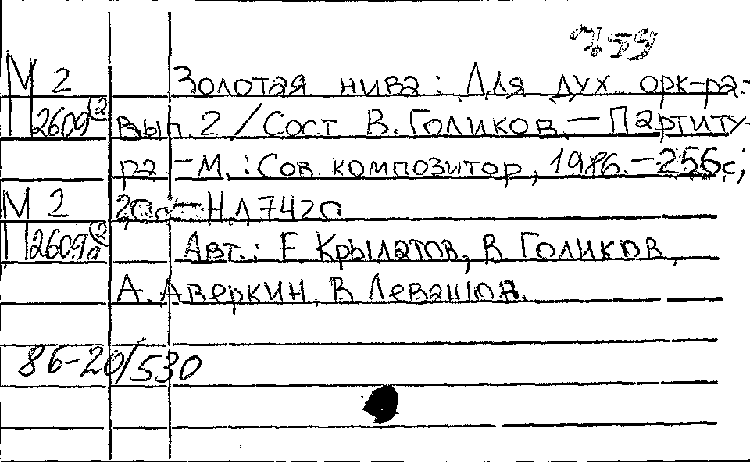 759
М 2 Золотая нива: Для дух орк-ра.-
П2609(2 Вып. 2/Сост В. Голиков.—Партиту-
ра —М.: Сов композитор, 1986.—256с;
М 2 —НЛ7420
П2609а(2 Авт.: Е Крылатов, В Голиков,
А. Аверкин, В Левашов.
86-20/530